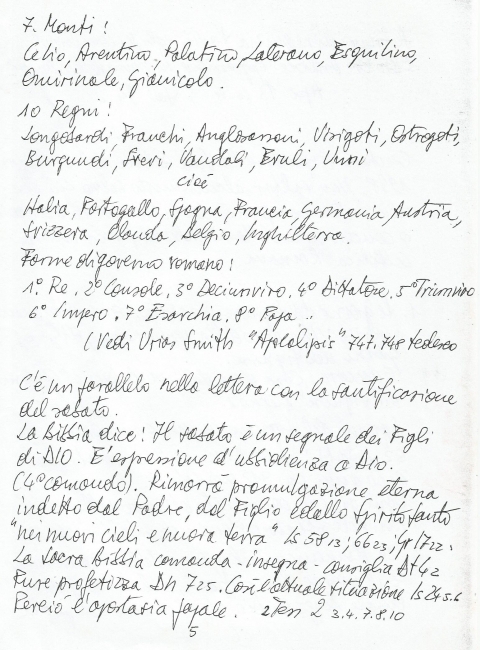 7. Monti!
Celio, Aventino, Palatino, Laterano, Esquilino,
Quirinale, Gianicolo.
10 Regni!
Longobardi, Franchi, Anglosassoni, Visigoti, Ostrogoti,
Burgundi, Svevi, Vandali, Eruli, Unni
cioè
Italia, Portogallo, Spagna, Francia, Germania, Austria,
Svizzera, Olanda, Belgio, Inghilterra.
Forme di governo romano!
1° Re. 2° Console. 3° Decimviro. 4° Dittatore. 5° Triumviro
6° Impero. 7° Esarchia. 8° Papa..
(Vedi Urias Smith "Apocalipis" 747.748 tedesco
C'è un parallelo nella lettera con la santificasione
del sabato.
La Bibbia dice! Il sabato è un segnale dei Figli
di DIO. E' espressione d'ubbidienza a Dio.
(4° comando). Rimarrà promulgazione eterna
indetto dal Padre, dal Figlio e dallo Spirito Santo
"nei nuovi cieli e nuova terra" Is 58 13; 66 23; 17 22.
La Sacra Bibbia comanda - insegna - consiglia Dt 4 2
Pure profetizza Dn 7 25. Così l'attuale situazione Is 24 5.6
Perciò l'apostasia papale. 2 Tess 2 3.4.7.8.10
5